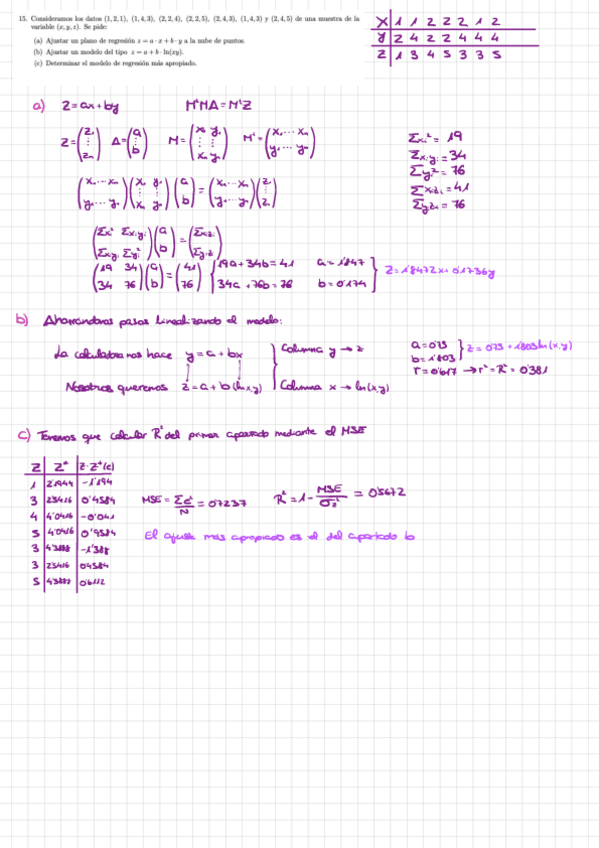 15. Consideramos los datos (1, 2, 1), (1, 4, 3), (2, 2, 4), (2, 2, 5), (2, 4, 3), (1, 4, 3) y (2, 4, 5) de una muestra de la
variable (x, y, z). Se pide:
(a) Ajustar un plano de regresión z = a · x + b · y a la nube de puntos.
(b) Ajustar un modelo del tipo z = a + b · ln(xy).
(c) Determinar el modelo de regresión más apropiado.
X 1 1 2 2 2 1 2
y 2 4 2 2 4 4 4
Z 1 3 4 5 3 3 5
a) Z = ax + by MᵗMA = MᵗZ
Z = (z₁ ⋮ zₙ) A = (a ⋮ b) M = (x₁ y₁ ⋮ ⋮ xₙ yₙ) Mᵗ = (x₁ ... xₙ y₁ ... yₙ)
Σxᵢ² = 19
Σxᵢyᵢ = 34
Σyᵢ² = 76
Σxᵢzᵢ = 41
Σyᵢzᵢ = 76
(x₁ ... xₙ y₁ ... yₙ) (x₁ y₁ ⋮ ⋮ xₙ yₙ) (a b) = (x₁ ... xₙ y₁ ... yₙ) (z₁ ⋮ zₙ)
(Σxᵢ² Σxᵢyᵢ Σxᵢyᵢ Σyᵢ²) (a b) = (Σxᵢzᵢ Σyᵢzᵢ)
(19 34 34 76) (a b) = (41 76) { 19a + 34b = 41 a = 1'847
34a + 76b = 76 b = 0'174 } Z = 1'8472x + 0'1736y
b) Ahorrándonos pasos Linealizando el modelo:
La calculadora nos hace y = a + bx
Nosotros queremos z = a + b (ln x,y)
Columna y → z
Columna x → ln(x,y)
a = 0'73
b = 1'803
r = 0'617 → r² = R² = 0'381
z = 0'73 + 1'803 ln(x,y)
c) Tenemos que calcular R² del primer apartado mediante el MSE
Z Z* Z-Z*(e)
1 2'1944 -1'194
3 2'5416 0'4584
4 4'0416 -0'041
5 4'0416 0'9584
3 4'3888 -1'388
3 2'5416 0'4584
5 4'3888 0'6112
MSE = Σe²/N = 0'7237 R² = 1 - MSE/σz² = 0'5672
El ajuste más apropiado es el del apartado b